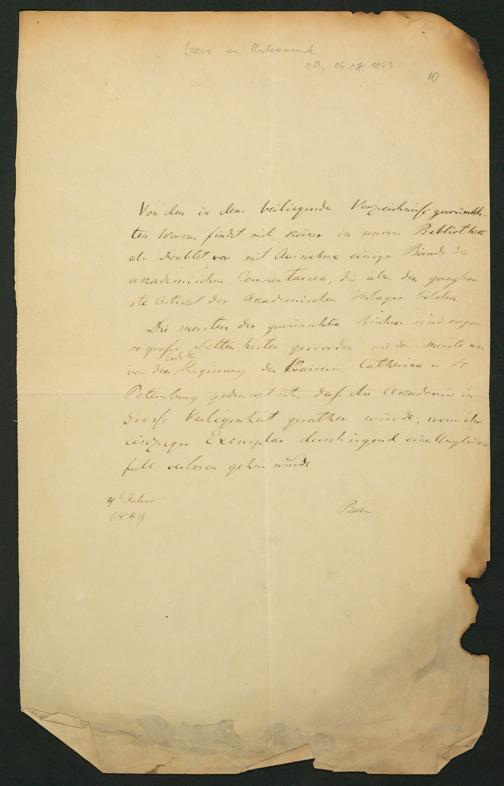 Baer an
o.D., 04.07.1849
10
Von den in dem beiliegenden Verzeichnisse gewünsch-
ten Werken findet sich keines in unserer Bibliothek
als Doublet vor mit Ausnahme einiger Bände der
akademischen Commentarien, die aber den gangbar
ste Artikel der Akademischen Verlages bilden.
Die meisten der gewünschten Bücher sind sogar
so große Seltenheiten geworden
von der Regierung der Kaiserin Catharina in St
Petersburg gedruckt ist, daß die Akademie in
große Verlegenheit gerathen würde, wenn ihr
einziges Exemplar durch irgend einen Unglücks-
fall verloren gehen würde
4t Julius
1849
Baer